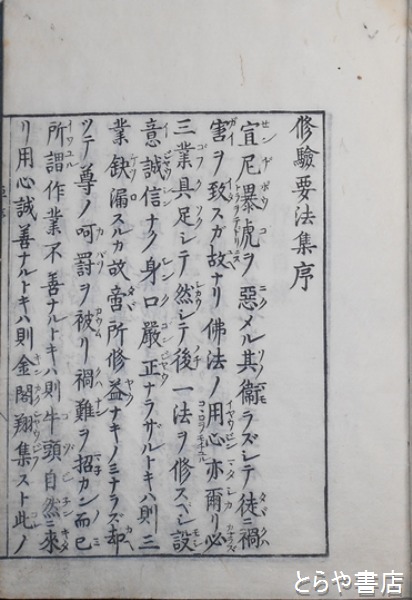 修驗要法集序
宣尼暴虎ヲ惡メル其衞ラズシテ徒ニ禍
害ヲ致スガ故ナリ佛法ノ用心亦爾リ必
三業具足シテ然シテ後一法ヲ修スベシ設
意誠信ナク身口嚴正ナラザルトキハ則三
業缺漏スルカ故啻所修益ナキノミナラズ却
ツテ尊ノ呵罸ヲ被リ禍難ヲ招カン而已
所謂作業不善ナルトキハ則牛頭自然ニ來
リ用心誠善ナルトキハ則金閣翔集スト此ノ
とらや書店